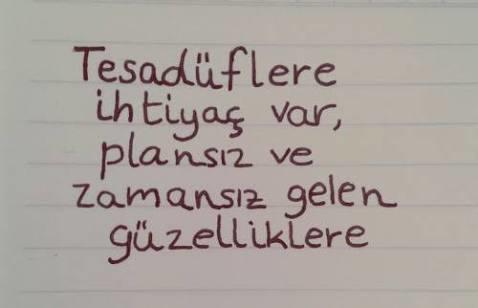 Tesadüflere
ihtiyaç var,
plansız ve
zamansız gelen
güzelliklere